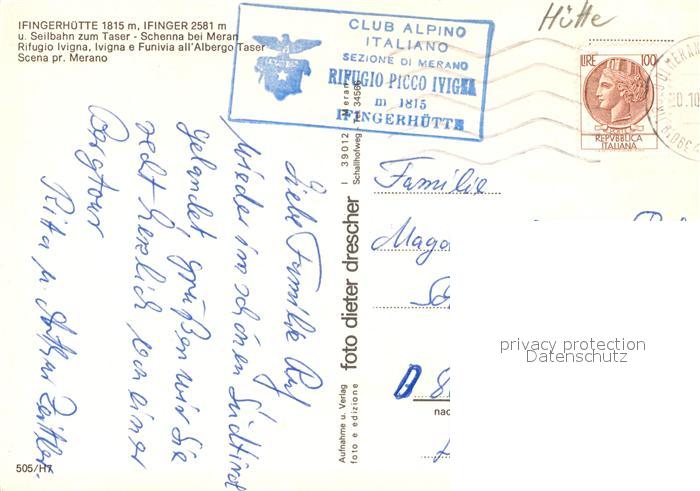 IFINGERHÜTTE 1815 m, IFINGER 2581 m
u. Seilbahn zum Taser - Schenna bei Meran
Rifugio Ivigna, Ivigna e Funivia all'Albergo Taser
Scena pr. Merano
CLUB ALPINO
ITALIANO
SEZIONE DI MERANO
RIFUGIO PICCO IVIGNA
m 1815
IFINGERHÜTTE
Hütte
LIRE 100
REPVBBLICA
ITALIANA
Liebe Familie Ruf
Wieder im schönen Südtirol
gelandet grüßen wir Sie
recht herzlich von einer
Bergtour
Rita u. Arthur
Aufnahme u. Verlag
foto e edizione
foto dieter drescher
I 39012 Meran
Schallhofweg - Tel. 34566
Familie
D 8
nach
privacy protection
Datenschutz
505/H7